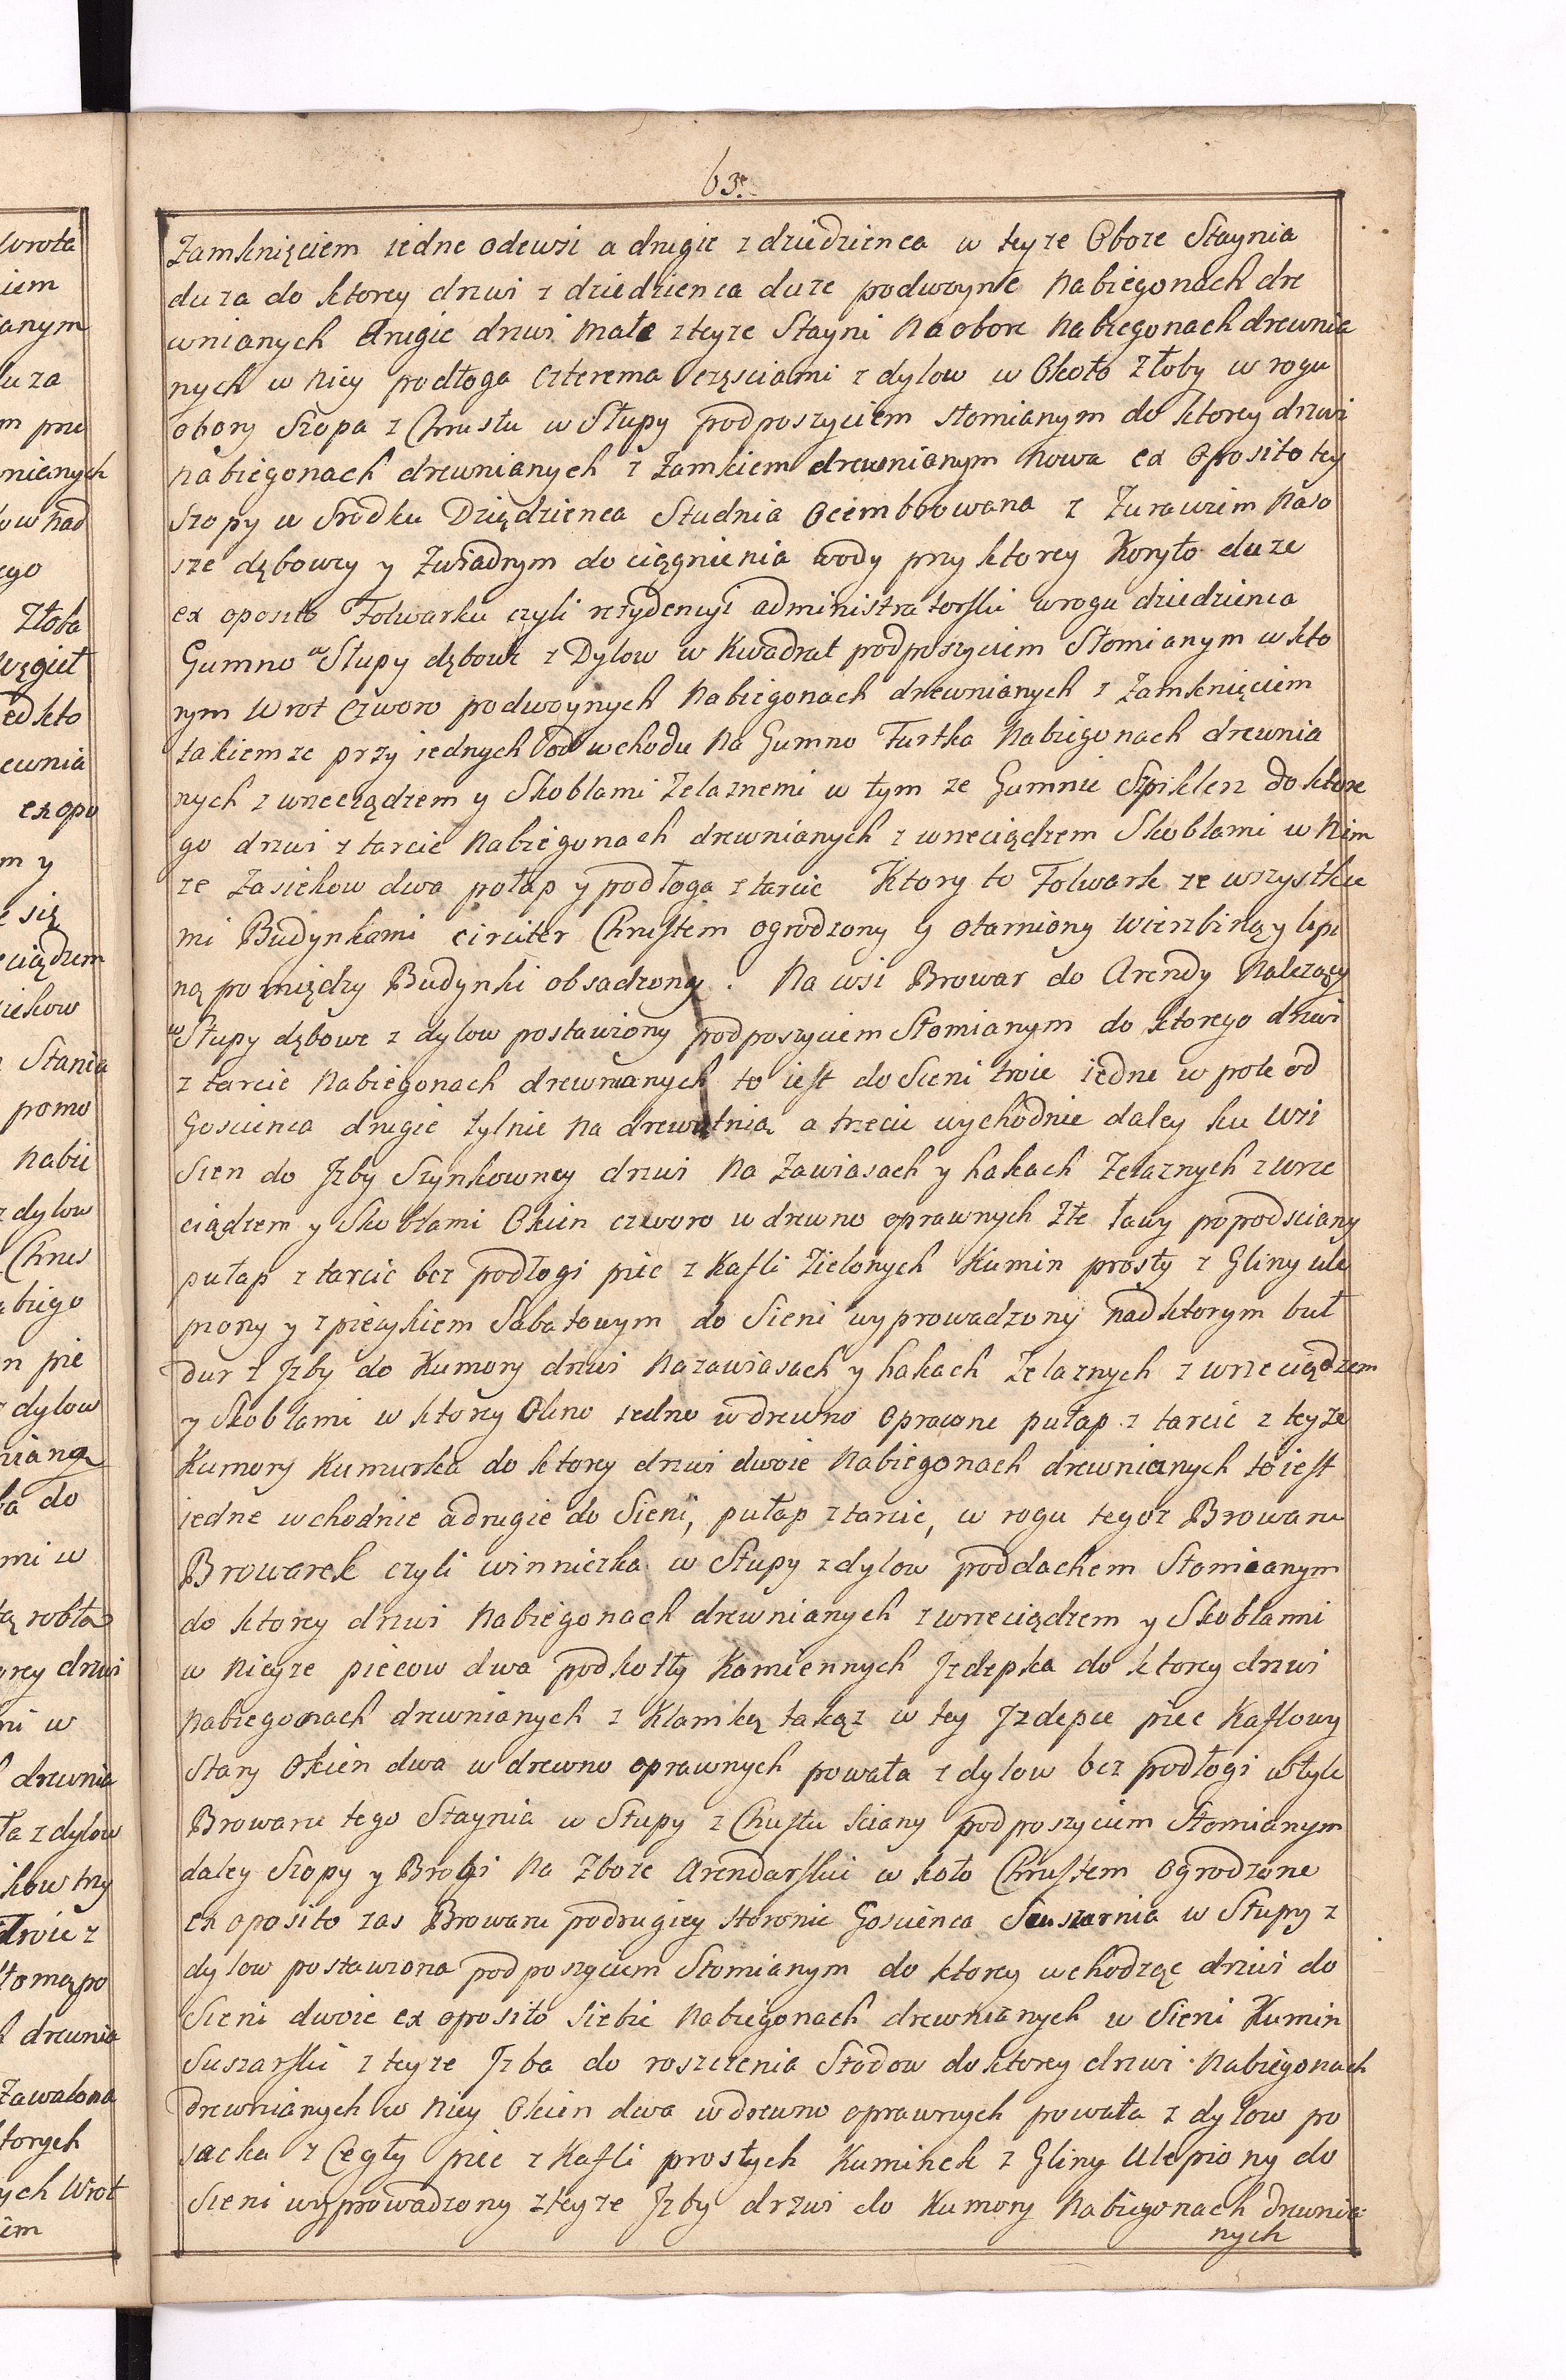 63.
Zamknięciem iedne odewsi a drugie z dziedzienca w teyze Oborze Staynia
duza do ktorey drzwi z dziedzienca duze podwoyne nabiegonach dre
wnianych drugie drzwi małe zteyze Stayni na obore nabiegonach drewnia
nych w niey podłoga czterema częsciami z dylow w Około Złoby w rogu
obory Szopa z Chrustu w Słupy podposzyciem słomianym do ktorey drzwi
nabiegonach drewnianych z Zamkiem drewnianym nowa ex Oposito tey
Szopy w Srodku Dziędzienca Studnia Ocembrowana z Zurawiem naso
sze dębowey y Zwiadrym do ciągnienia wody przy ktorey Koryto duze
ex oposito Folwarku czyli rezydencyi administratorski wrogu dziedzienca
Gumno w Słupy dębowe z Dylow w Kwadrat podposzyciem Słomianym w kto
rym Wrot Czworo podwoynych nabiegonach drewnianych z Zamknięciem
takiemze przy iednych od wchodu na Gumno Furtka nabiegonach drewnia
nych z wrzeciądzem y Skoblami Zelaznemi w tym ze Gumnie Szpiklerz do ktore
go drzwi z tarcic nabiegonach drewnianych z wrzeciądzem Skoblami w nim
ze Zasiekow dwa połap y podłoga z tarcic Ktory to Folwark ze wszystkie
mi Budynkami circiter Chrustem ogrodzony y otarniony wierzbiną y lipi
ną pomiędzy Budynki obsadzony. Na wsi Browar do Arendy nalezący
w Słupy dębowe z dylow postawiony podposzyciem Słomianym do ktorego drzwi
z tarcic nabiegonach drewnianych to iest do Sieni troie iedne w pole od
Goscienca drugie tylnie na drewutnią a trzecie wychodnie daley ku Wsi
Sien do Jzby Szynkowney drzwi na Zawiasach y hakach Zelaznych z wrze
ciądzem y Skoblami Okien czworo w drewno oprawnych Złe ławy popodsciany
pułap z tarcic bez podłogi piec z Kafli Zielonych Kumin prosty z Gliny ule
piony y z piecykiem Sabatowym do Sieni wyprowadzony nadktorym buł
dur z Jzby do Kumory drzwi nazawiasach y hakach Zelaznych z wrzeciądzem
y Skoblami w ktorey Okno iedno w drewno Oprawne pułap z tarcic z teyze
Kumory Kumurka do ktorey drzwi dwoie nabiegonach drewnianych to iest
iedne wchodnie adrugie do Sieni, pułap ztarcic, w rogu tegoz Browaru
Browarek czyli winniczka w Słupy zdylow poddachem Słomianym
do ktorey drzwi nabiegonach drewnianych z wrzeciądzem y Skoblami
w nieyze piecow dwa podkotły Kamiennych Jzdepka do ktorey drzwi
nabiegonach drewnianych z Klamką takąz w tey Jzdepce piec Kaflowy
Stary Okien dwa w drewno oprawnych powała z dylow bez podłogi wtyle
Browaru tego Staynia w Słupy z Chustu sciany podposzyciem Słomianym
daley Szopy y Brogi na Zboze Arendarskie w koło Chrustem Ogrodzone
ex oposito zas Browaru podrugiey stornie Goscienca Suszarnia w Słupy z
dylow postawiona podposzyciem Słomianym do ktorey wchodząc drzwi do
Sieni dwoie ex oposito siebie nabiegonach drewnianych w Sieni Kumin
Suszarski z teyze Jzba do roszczenia Słodow do ktorey drzwi nabiegonach
drewnianych w niey Okien dwa wdrewno oprawnych powała z dylow po
sacka z Cegły piec z Kafli prostych Kuminek z Gliny Ulepiony do
Sieni wyprowadzony zteyze Jzby drzwi do Kumory nabiegonach drewnia
nych